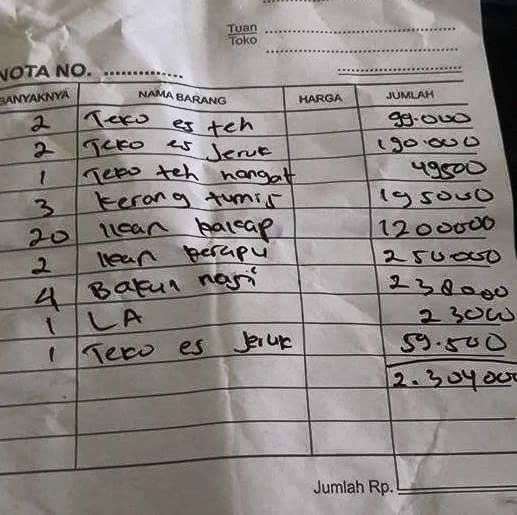 Tuan
Toko
NOTA NO.
BANYAKNYA NAMA BARANG HARGA JUMLAH
2 Teko es teh 99.000
2 Teko es Jeruk 190.000
1 Teko teh hangat 49500
3 kerang tumis 195000
20 Ikan kakap 1200000
2 Ikan kerapu 250000
4 Bakul nasi 238000
1 LA 23000
1 Teko es Jeruk 59.500
2.304000
Jumlah Rp.